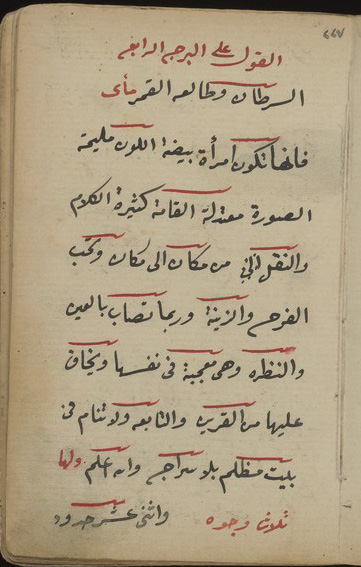 ٤٤٧
القول على البرجه الرابعه
السرطان وطالعه القمر مأى
فانها تكون امرأة بيضة اللون مليحة
الصورة معتدلة القامة كثيرة الكلام
والنقل من مكان الى مكان وتحب
الفرح والزينة وربما تصاب بالعين
والنظره وهى معجبة فى نفسها ويخاف
عليها من القرين والتابعه ولا تنام فى
بليت مظلم بلا سراج والله اعلم ولها
ثلاث وجوه واثنى عشر حدود